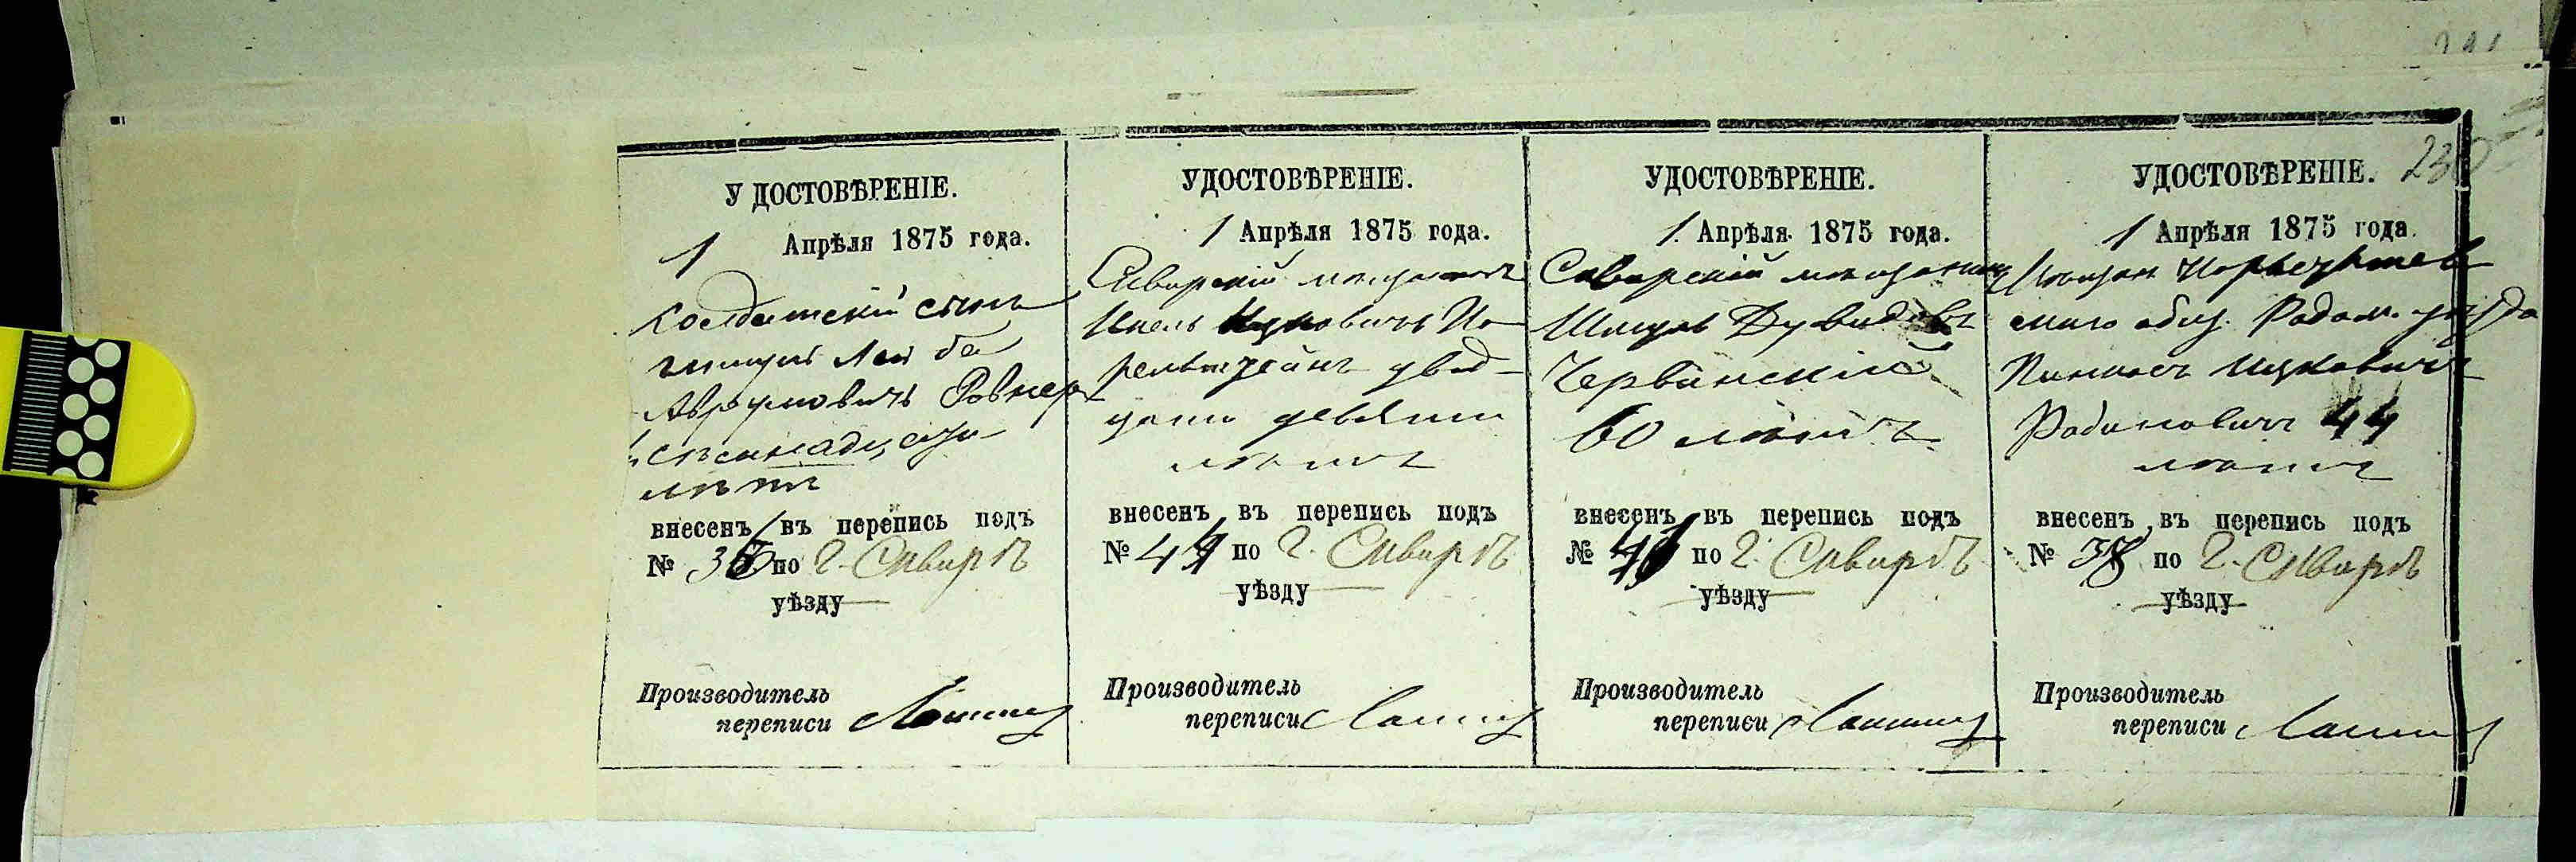 230
УДОСТОВѢРЕНІЕ.
1 Апрѣля 1875 года.
Солдатскій сынъ
Лейба
Аврумовичъ Ровнер
лѣтъ
внесенъ въ перепись подъ
№ 36 по г. Сквирѣ
уѣзду
Производитель
переписи
УДОСТОВѢРЕНІЕ.
1 Апрѣля 1875 года.
Сквирскій мещанинъ
Ицковичъ
двад-
цати девяти
лѣтъ
внесенъ въ перепись подъ
№ 44 по г. Сквирѣ
уѣзду
Производитель
переписи
УДОСТОВѢРЕНІЕ.
1 Апрѣля 1875 года.
Сквирскій мещанинъ
Шмуль Дувидовъ
Червинскій
60 лѣтъ
внесенъ въ перепись подъ
№ по г. Сквирѣ
уѣзду
Производитель
переписи
УДОСТОВѢРЕНІЕ.
1 Апрѣля 1875 года.
общ. Радом. уѣзда
Пинхасъ Ицковичъ
Рабиновичъ 44
лѣтъ
внесенъ въ перепись подъ
№ 38 по г. Сквирѣ
уѣзду
Производитель
переписи